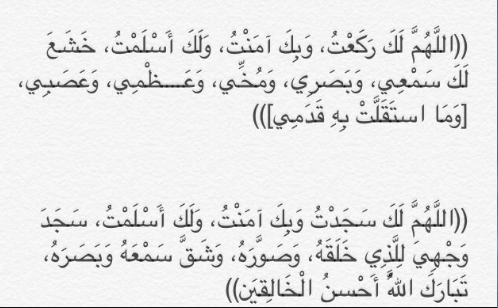 ((اللَّهُمَّ لَكَ رَكَعْتُ، وَبِكَ آمَنْتُ، وَلَكَ أَسْلَمْتُ، خَشَعَ
لَكَ سَمْعِي، وَبَصَرِي، وَمُخِّي، وَعَـــظْمِي، وَعَصَبِي،
[وَمَا استَقَلَّتْ بِهِ قَدَمِي]))
((اللَّهُمَّ لَكَ سَجَدْتُ وَبِكَ آمَنْتُ، وَلَكَ أَسْلَمْتُ، سَجَدَ
وَجْهِيَ لِلَّذِي خَلَقَهُ، وَصَوَّرَهُ، وَشَقَّ سَمْعَهُ وَبَصَرَهُ،
تَبَارَكَ اللهُ أَحْسنُ الْخَالِقِيْنَ))